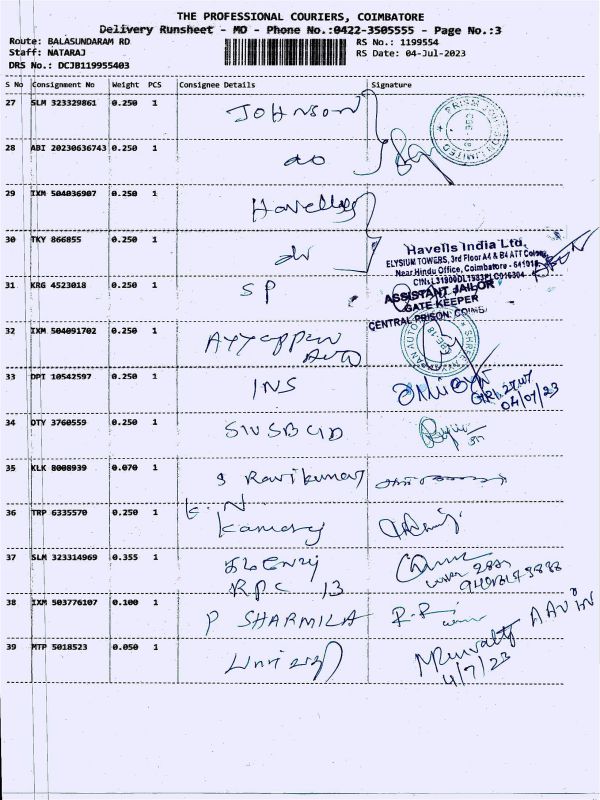 THE PROFESSIONAL COURIERS, COIMBATORE
Delivery Runsheet - MD - Phone No.:0422-3505555 - Page No.:3
Route: BALASUNDARAM RD
RS No.: 1199554
Staff: NATARAJ
RS Date: 04-Jul-2023
DRS No.: DCJB119955403
S No Consignment No Weight PCS Consignee Details Signature
27 SLM 323329861 0.250 1 JOHNSON
PRISM JOHNSON LIMITED
CBE-18
28 ABI 20230636743 0.250 1 do
29 IXM 504036907 0.250 1 Havells
30 TKY 866855 0.250 1 do
Havells India Ltd.
ELYSIUM TOWERS, 3rd Floor A4 & B4 ATT Colony
Near Hindu Office, Coimbatore - 641018
31 KRG 4523018 0.250 1 SP
ASSISTANT JAILOR
GATE KEEPER
CENTRAL PRISON
32 IXM 504091702 0.250 1 AYYAPPAN
AUTO
33 DPI 10542597 0.250 1 INS
04/07/23
34 DTY 3760559 0.250 1 SIUSBCID
35 KLK 8008939 0.070 1 S Ravikumar
36 TRP 6335570 0.250 1 K.N
37 SLM 323314969 0.355 1
RPC 13
38 IXM 503776107 0.100 1 P SHARMILA
AAVIN
39 MTP 5018523 0.050 1
4/7/23